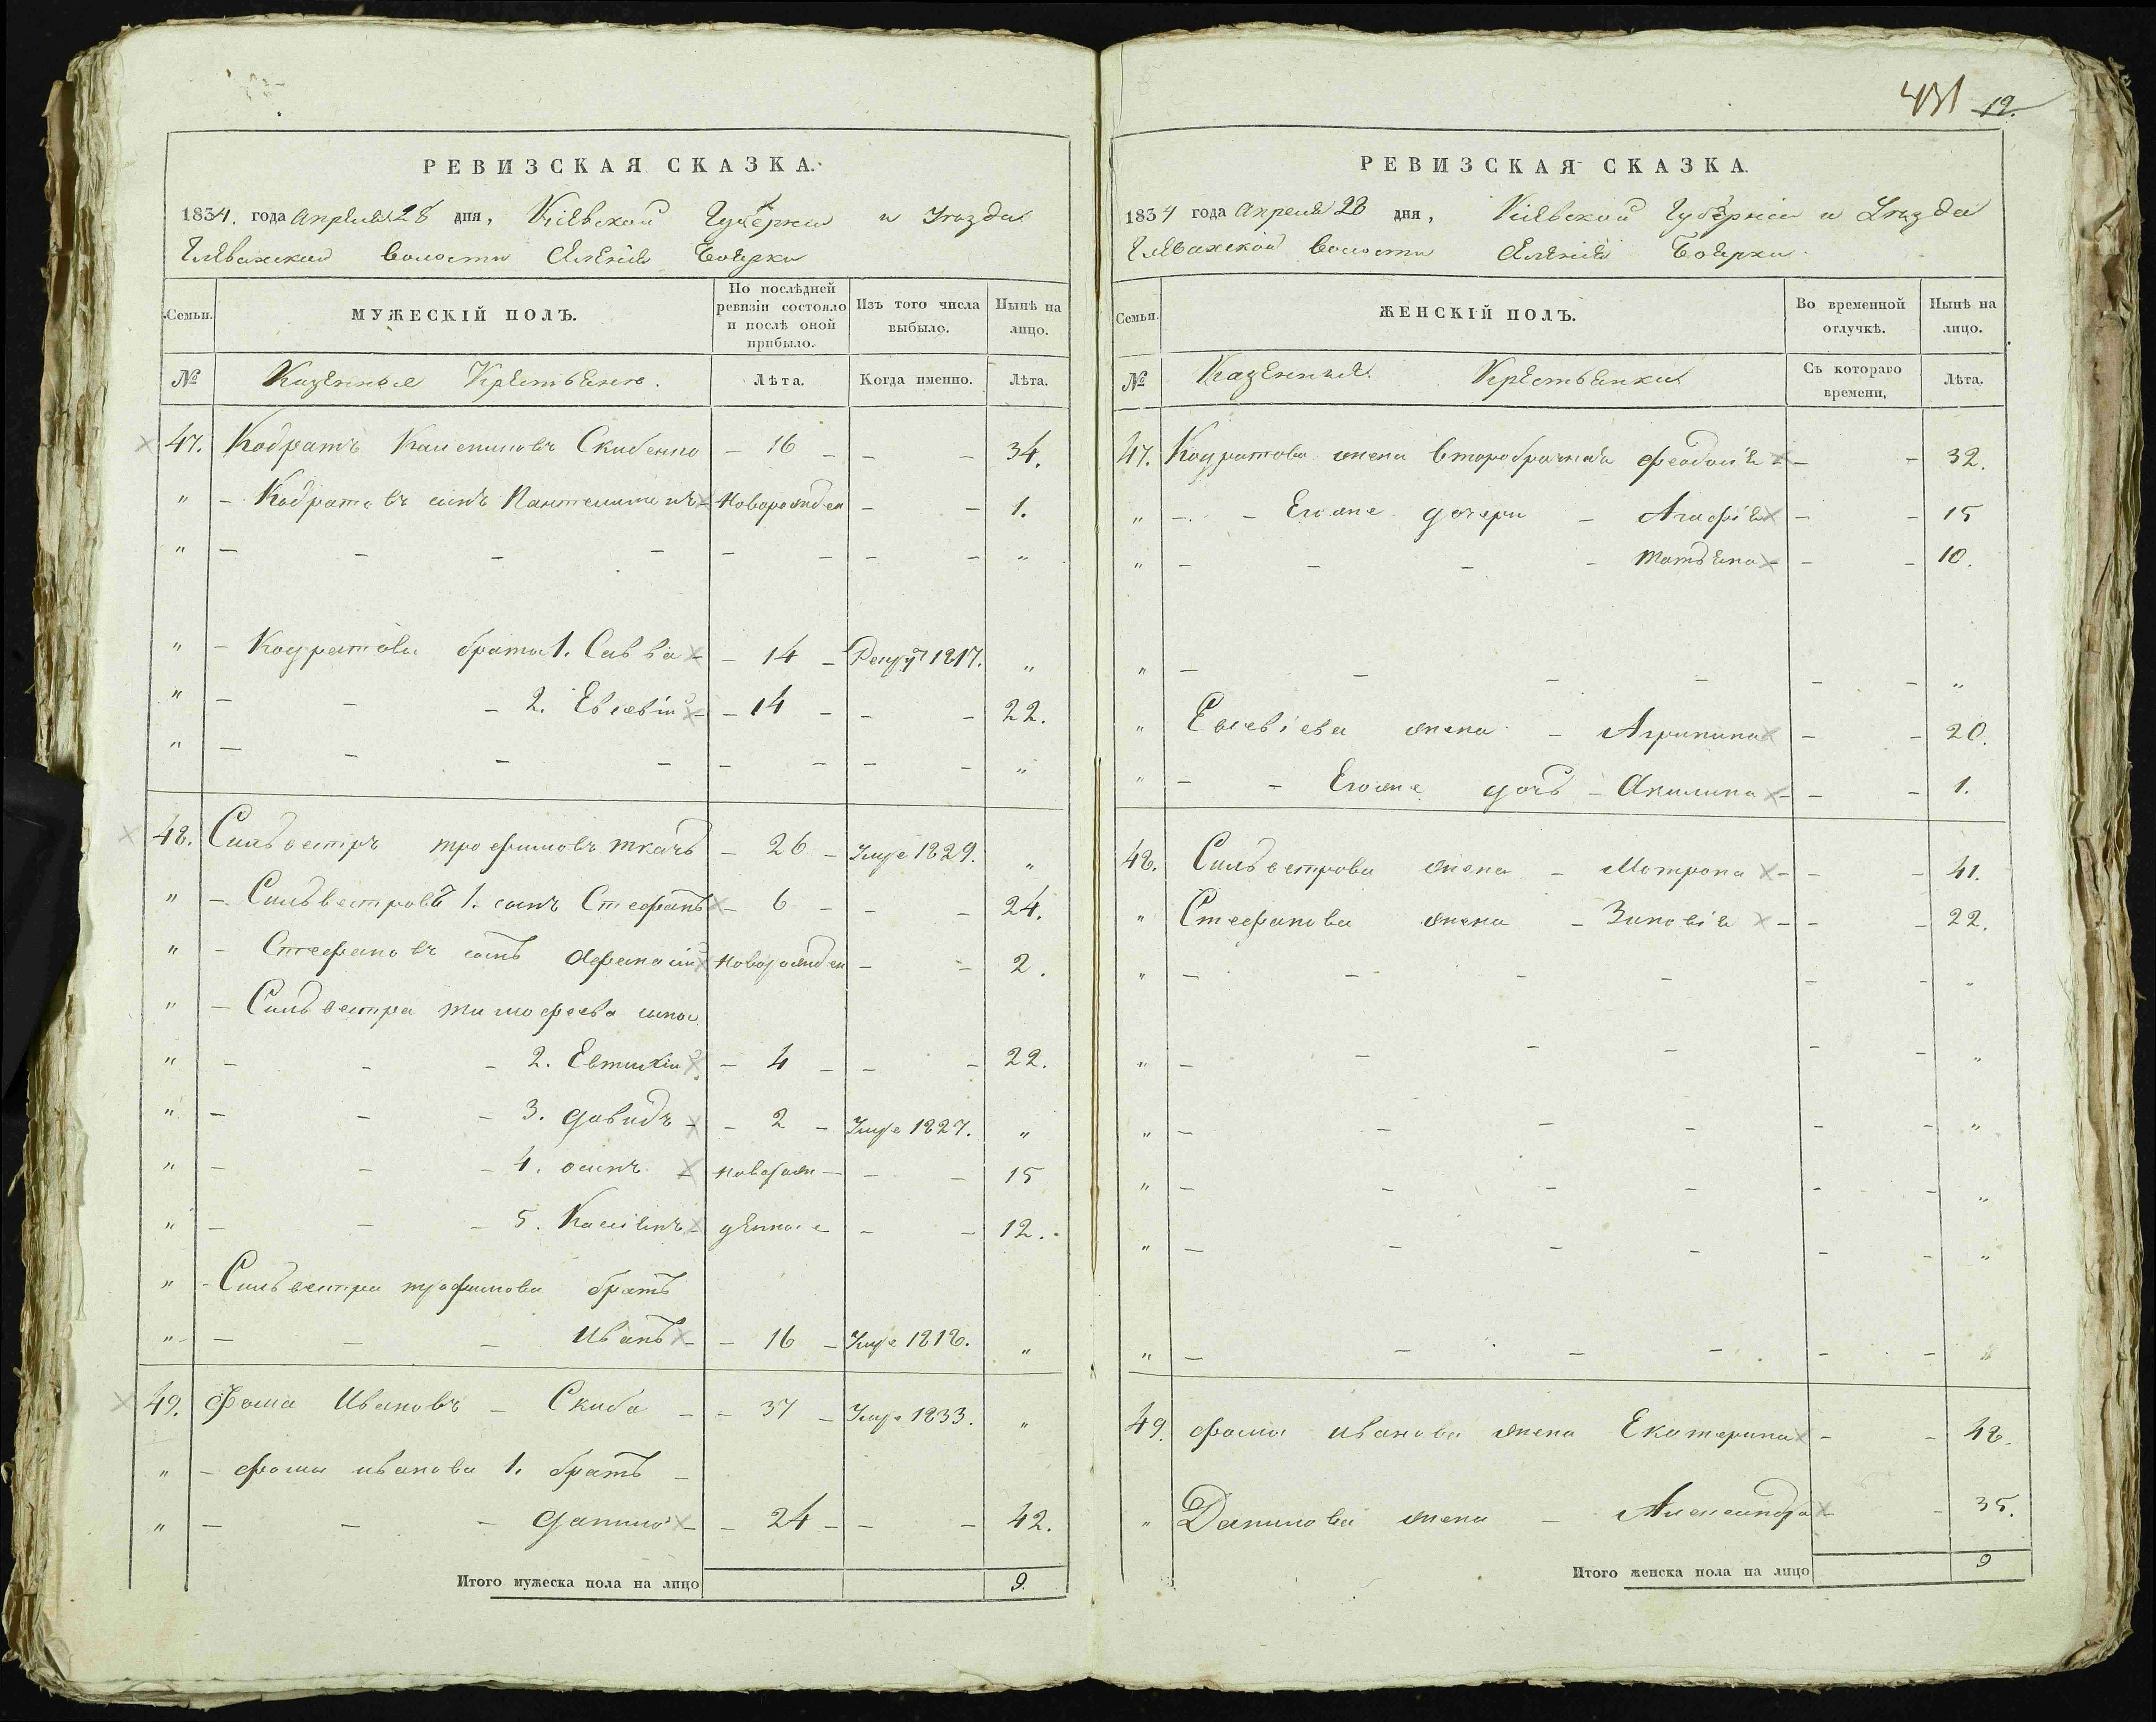 РЕВИЗСКАЯ СКАЗКА.
1834. года Апреля 28 дня, Кіевской Губерніи и Уезда
Глевахской Волости Селенія Боярки
Семьи.
МУЖЕСКІЙ ПОЛЪ.
По послѣдней ревизіи состояло и послѣ оной прибыло.
Изъ того числа выбыло.
Нынѣ на лицо.
№ Казенные Крестьяне. Лѣта. Когда именно. Лѣта.
47. Кодратъ Скибенко – 16 – – – 34.
" – Кодратовъ сынъ Пантелимонъ – Новорожден – – 1.
" – – – – – – – – "
" – Кодратова брата 1. Савва – – 14 – Рекрут 1817. "
" – – – 2. Евсевій – – 14 – – – 22.
" – – – – – – – – "
48. Сильвестръ Трофимовъ Ткачь – 26 – Умре 1829. "
" – Сильвестровъ 1. сынъ Стефанъ – 6 – – – 24.
" – Стефановъ сынъ Афанасій Новорожден – – 2.
" – Сильвестра Тимофеева сыны
" – – – 2. Евтихій – 4 – – – 22.
" – – – 3. Давидъ – – 2 – Умре 1827. "
" – – – 4. осипъ – новорож – – – 15
" – – – 5. Касіянъ – денные – – 12.
" – Сильвестра трофимова братъ
" – – – Иванъ – – 16 – Умре 1818. "
49. Фома Ивановъ – Скиба – – 37 – Умре 1833. "
" – Фомы иванова 1. братъ –
" – – – Данило – – 24 – – – 42.
Итого мужеска пола на лицо 9.
431 12.
РЕВИЗСКАЯ СКАЗКА.
1834 года Апреля 28 дня, Кіевской Губерніи и Уезда
Глевахской Волости Селенія Боярки.
Семьи.
ЖЕНСКІЙ ПОЛЪ.
Во временной отлучкѣ.
Нынѣ на лицо.
№ Казенныя Крестьянки Съ котораго времени. Лѣта.
47. Кодратова жена второбрачная Феодосія – – – 32.
" – – Егоже дочери – Агафія – – 15
" – – – – Татьяна – – – 10.
" – – – – – – "
" Евсевіева жена – Агрипина – – 20.
" – – Егоже дочь – Акилина – – – 1.
48. Сильвестрова жена – Мотрона – – – 41.
" Стефанова жена – Зиновія – – – 22.
" – – – – – – "
" – – – – – – "
" – – – – – – "
" – – – – – – "
" – – – – – – "
" – – – – – – "
49. Фомы иванова жена Екатерина – – 48.
" Данилова жена – Александра – – 35.
Итого женска пола на лицо 9